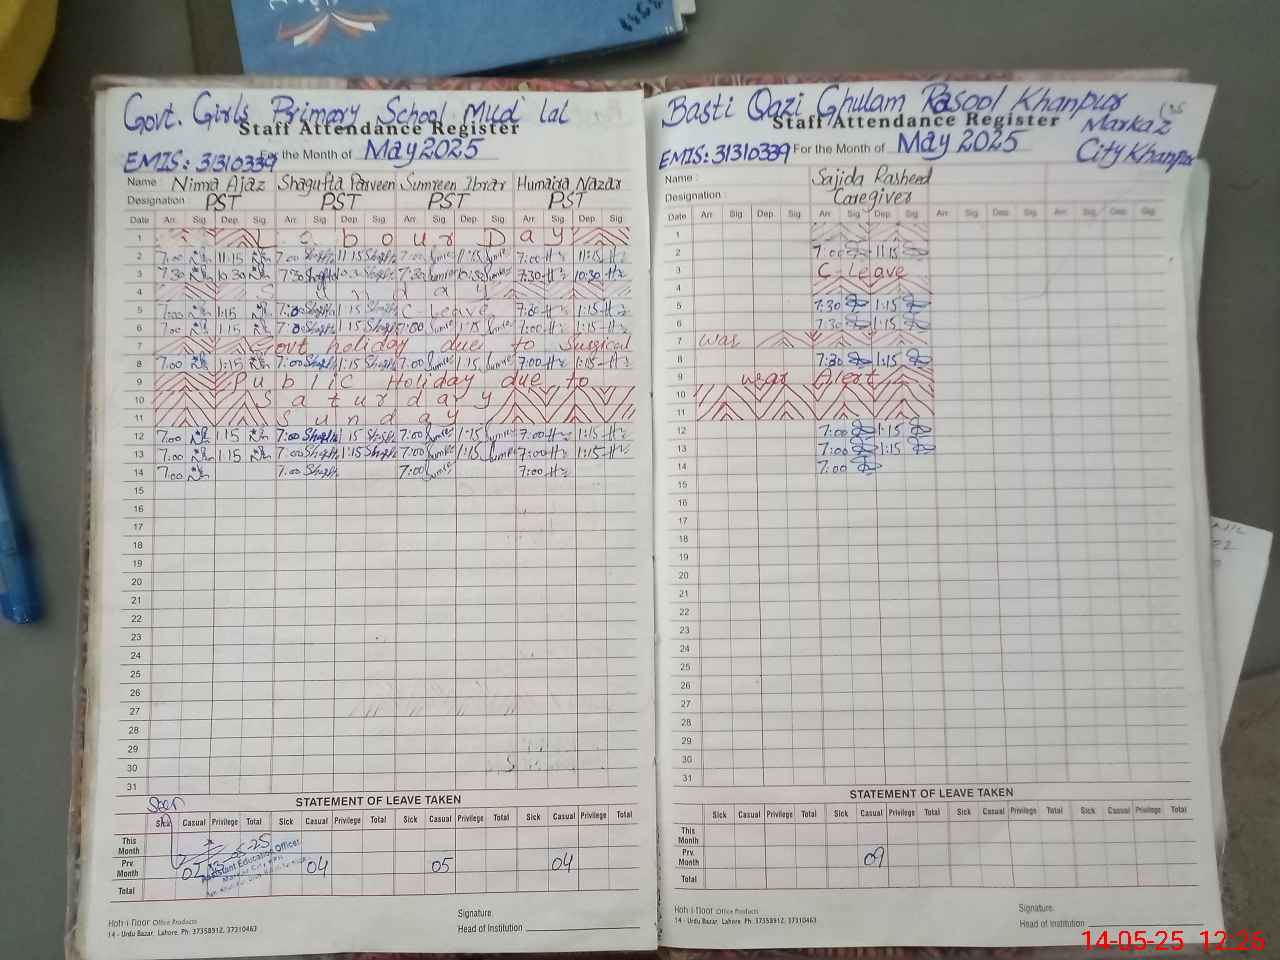 Govt. Girls Primary School Mud lal
Staff Attendance Register
EMIS: 31310339 For the Month of May 2025
Name : Nimra Ajaz Shagufta Parveen Sumreen Ibrar Humaira Nazar
Designation PST PST PST PST
Date Arr. Sig. Dep. Sig. Arr. Sig. Dep. Sig. Arr. Sig. Dep. Sig. Arr. Sig. Dep. Sig.
1 Labour Day
2 7:00 11:15 7:00 11:15 7:00 11:15 7:00 11:15
3 7:30 10:30 7:30 10:30 7:30 10:30 7:30 10:30
4 Sunday
5 7:00 1:15 7:00 1:15 C Leave 7:00 1:15
6 7:00 1:15 7:00 1:15 7:00 1:15 7:00 1:15
7 Govt holiday due to Surgical
8 7:00 1:15 7:00 1:15 7:00 1:15 7:00 1:15
9 Public Holiday due to
10 Saturday
11 Sunday
12 7:00 1:15 7:00 1:15 7:00 1:15 7:00 1:15
13 7:00 1:15 7:00 1:15 7:00 1:15 7:00 1:15
14 7:00 7:00 7:00 7:00
15
16
17
18
19
20
21
22
23
24
25
26
27
28
29
30
31
STATEMENT OF LEAVE TAKEN
Seen
Sick Casual Privilege Total Sick Casual Privilege Total Sick Casual Privilege Total Sick Casual Privilege Total
This Month
Prv. Month 04 05 04
Assistant Education Officer
Total
Hoh-i-Noor Office Products
14 - Urdu Bazar, Lahore. Ph: 37358912, 37310463
Signature.
Head of Institution
Basti Qazi Ghulam Rasool Khanpur
Staff Attendance Register
Markaz
EMIS: 31310339 For the Month of May 2025
City Khanpur
Name : Sajida Rasheed
Designation : Caregiver
Date Arr. Sig. Dep. Sig. Arr. Sig. Dep. Sig. Arr. Sig. Dep. Sig. Arr. Sig. Dep. Sig.
1
2 7:00 11:15
3 C-Leave
4
5 7:30 1:15
6 7:30 1:15
7 was
8 7:30 1:15
9 war Alert
10
11
12 7:00 1:15
13 7:00 1:15
14 7:00
15
16
17
18
19
20
21
22
23
24
25
26
27
28
29
30
31
STATEMENT OF LEAVE TAKEN
Sick Casual Privilege Total Sick Casual Privilege Total Sick Casual Privilege Total Sick Casual Privilege Total
This Month
Prv. Month 09
Total
Hoh-i-Noor Office Products
14 - Urdu Bazar, Lahore. Ph: 37358912, 37310463
Signature.
Head of Institution
14-05-25 12:26